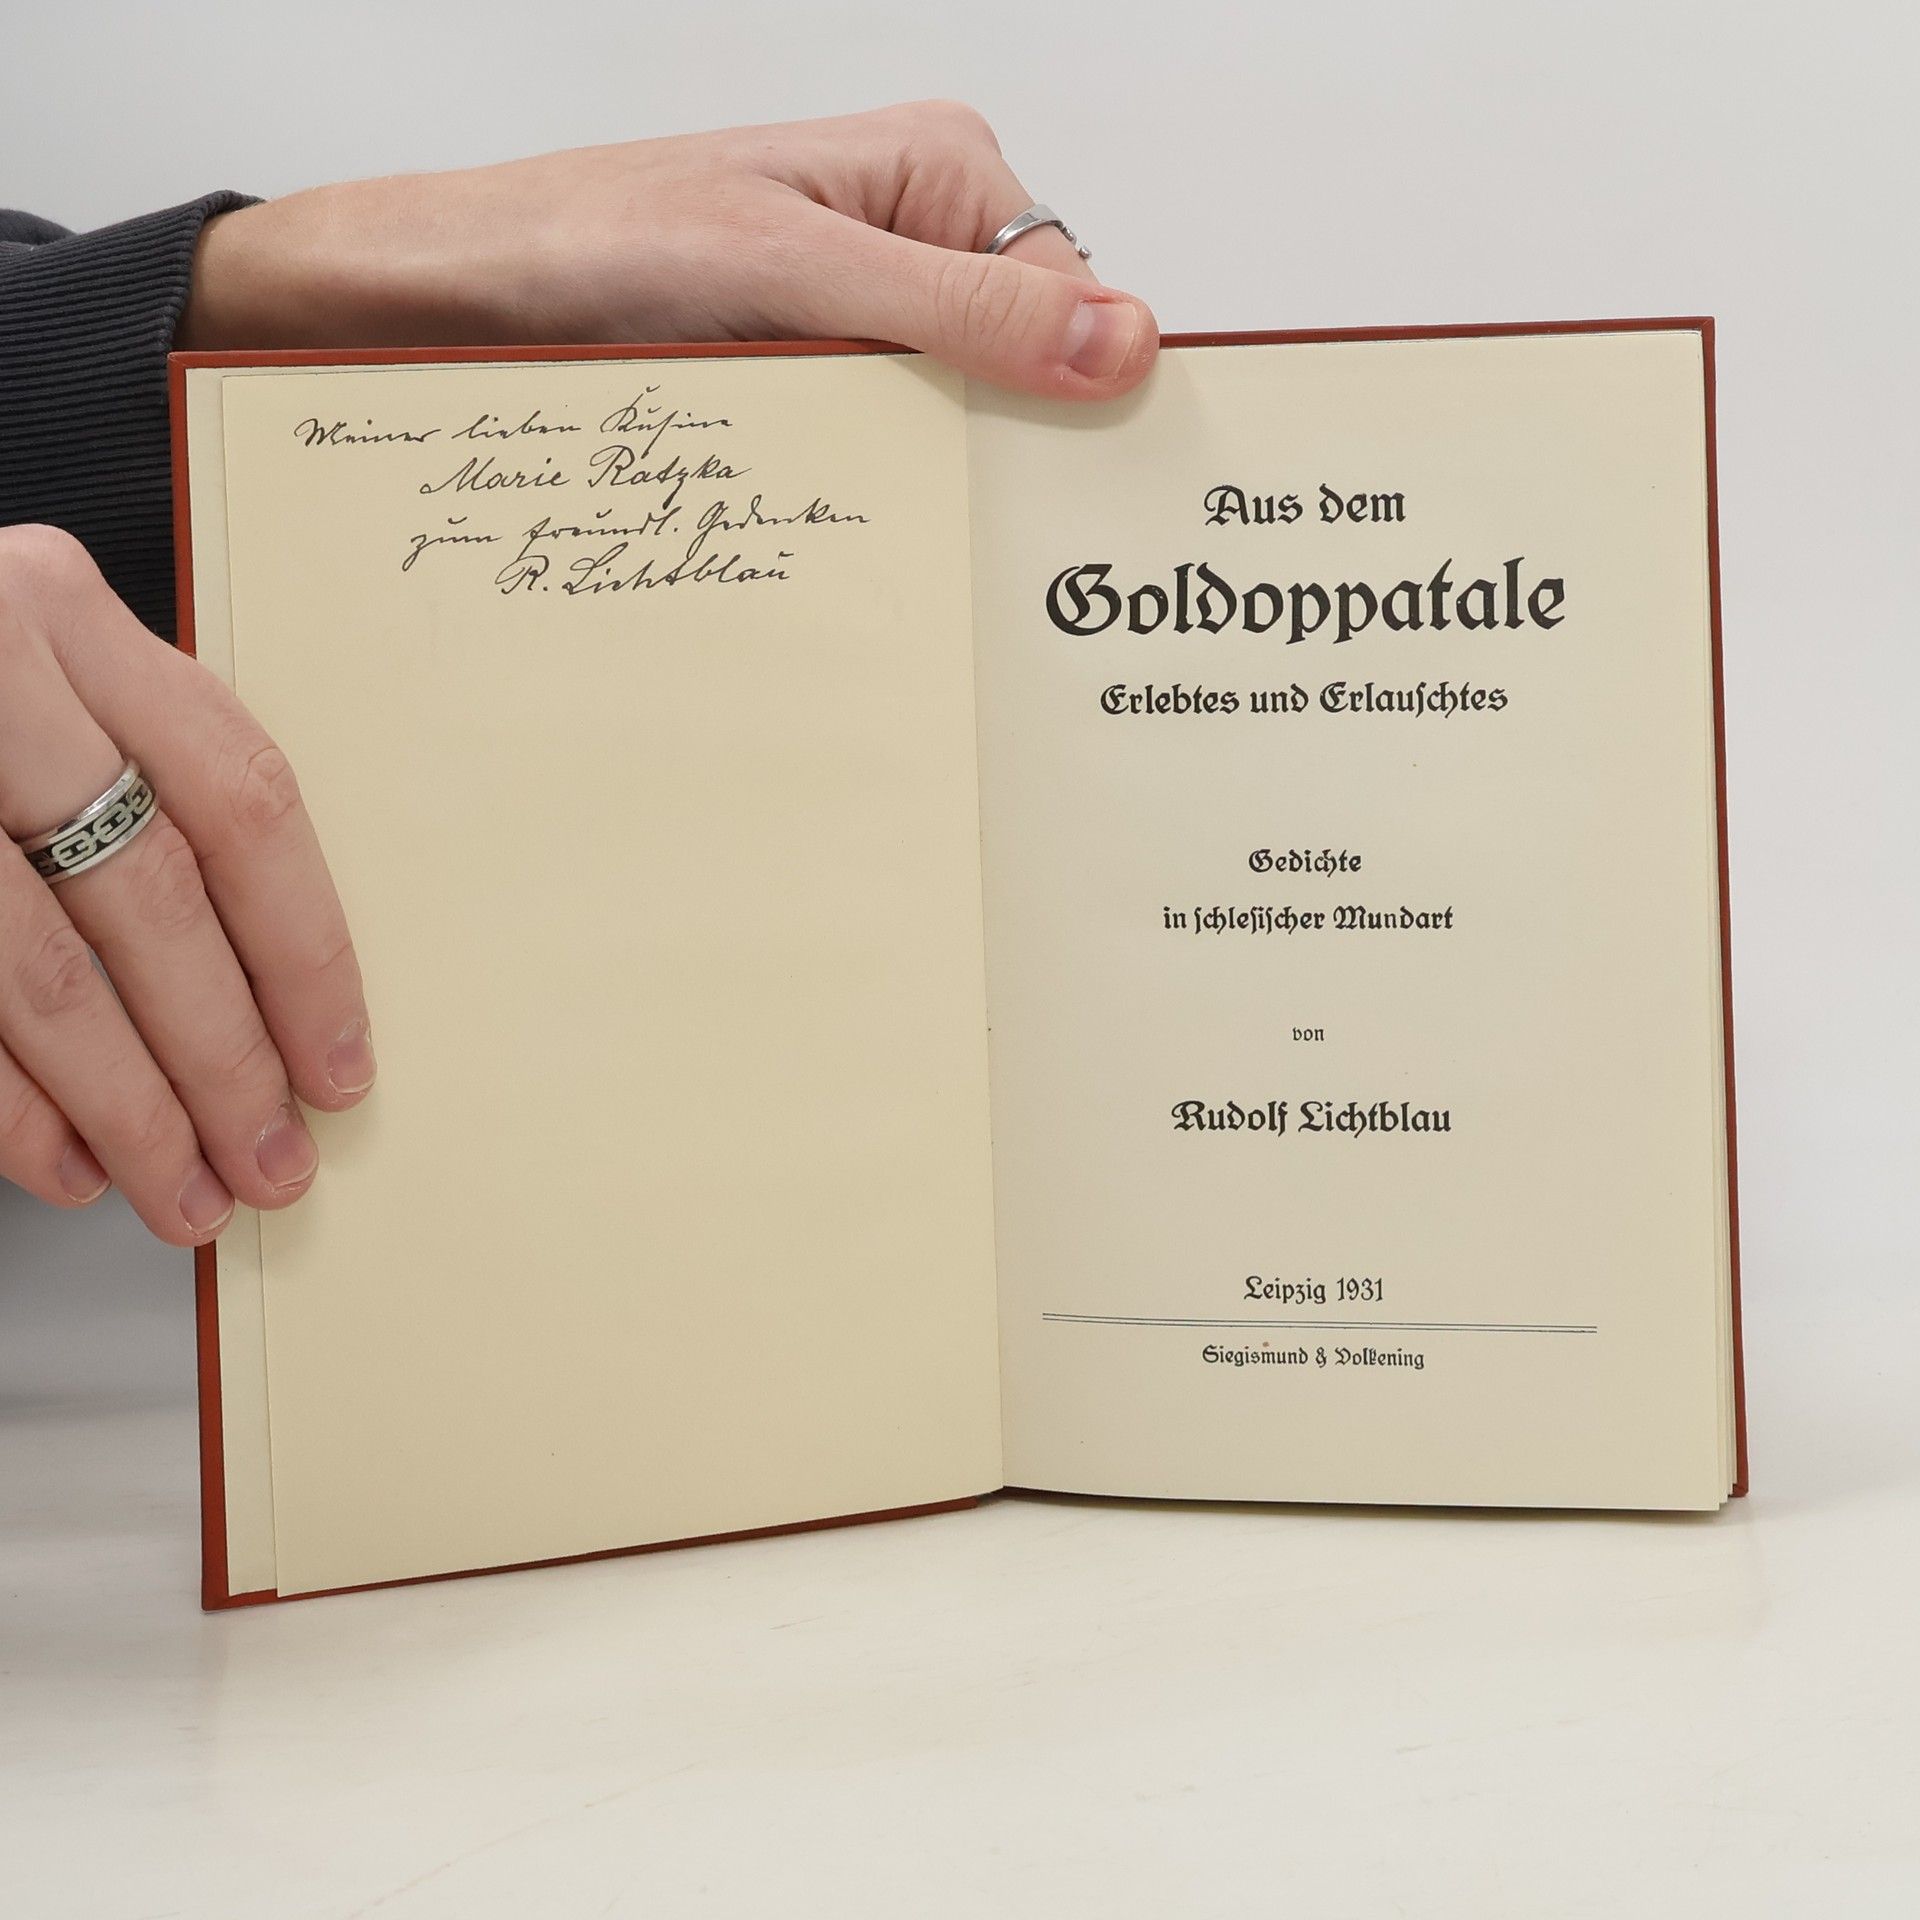 Meiner lieben Kusine
Marie Ratzka
zum freundl. Gedenken
R. Lichtblau
Aus dem
Goldoppatale
Erlebtes und Erlauschtes
Gedichte
in schlesischer Mundart
von
Rudolf Lichtblau
Leipzig 1931
Siegismund & Volkening